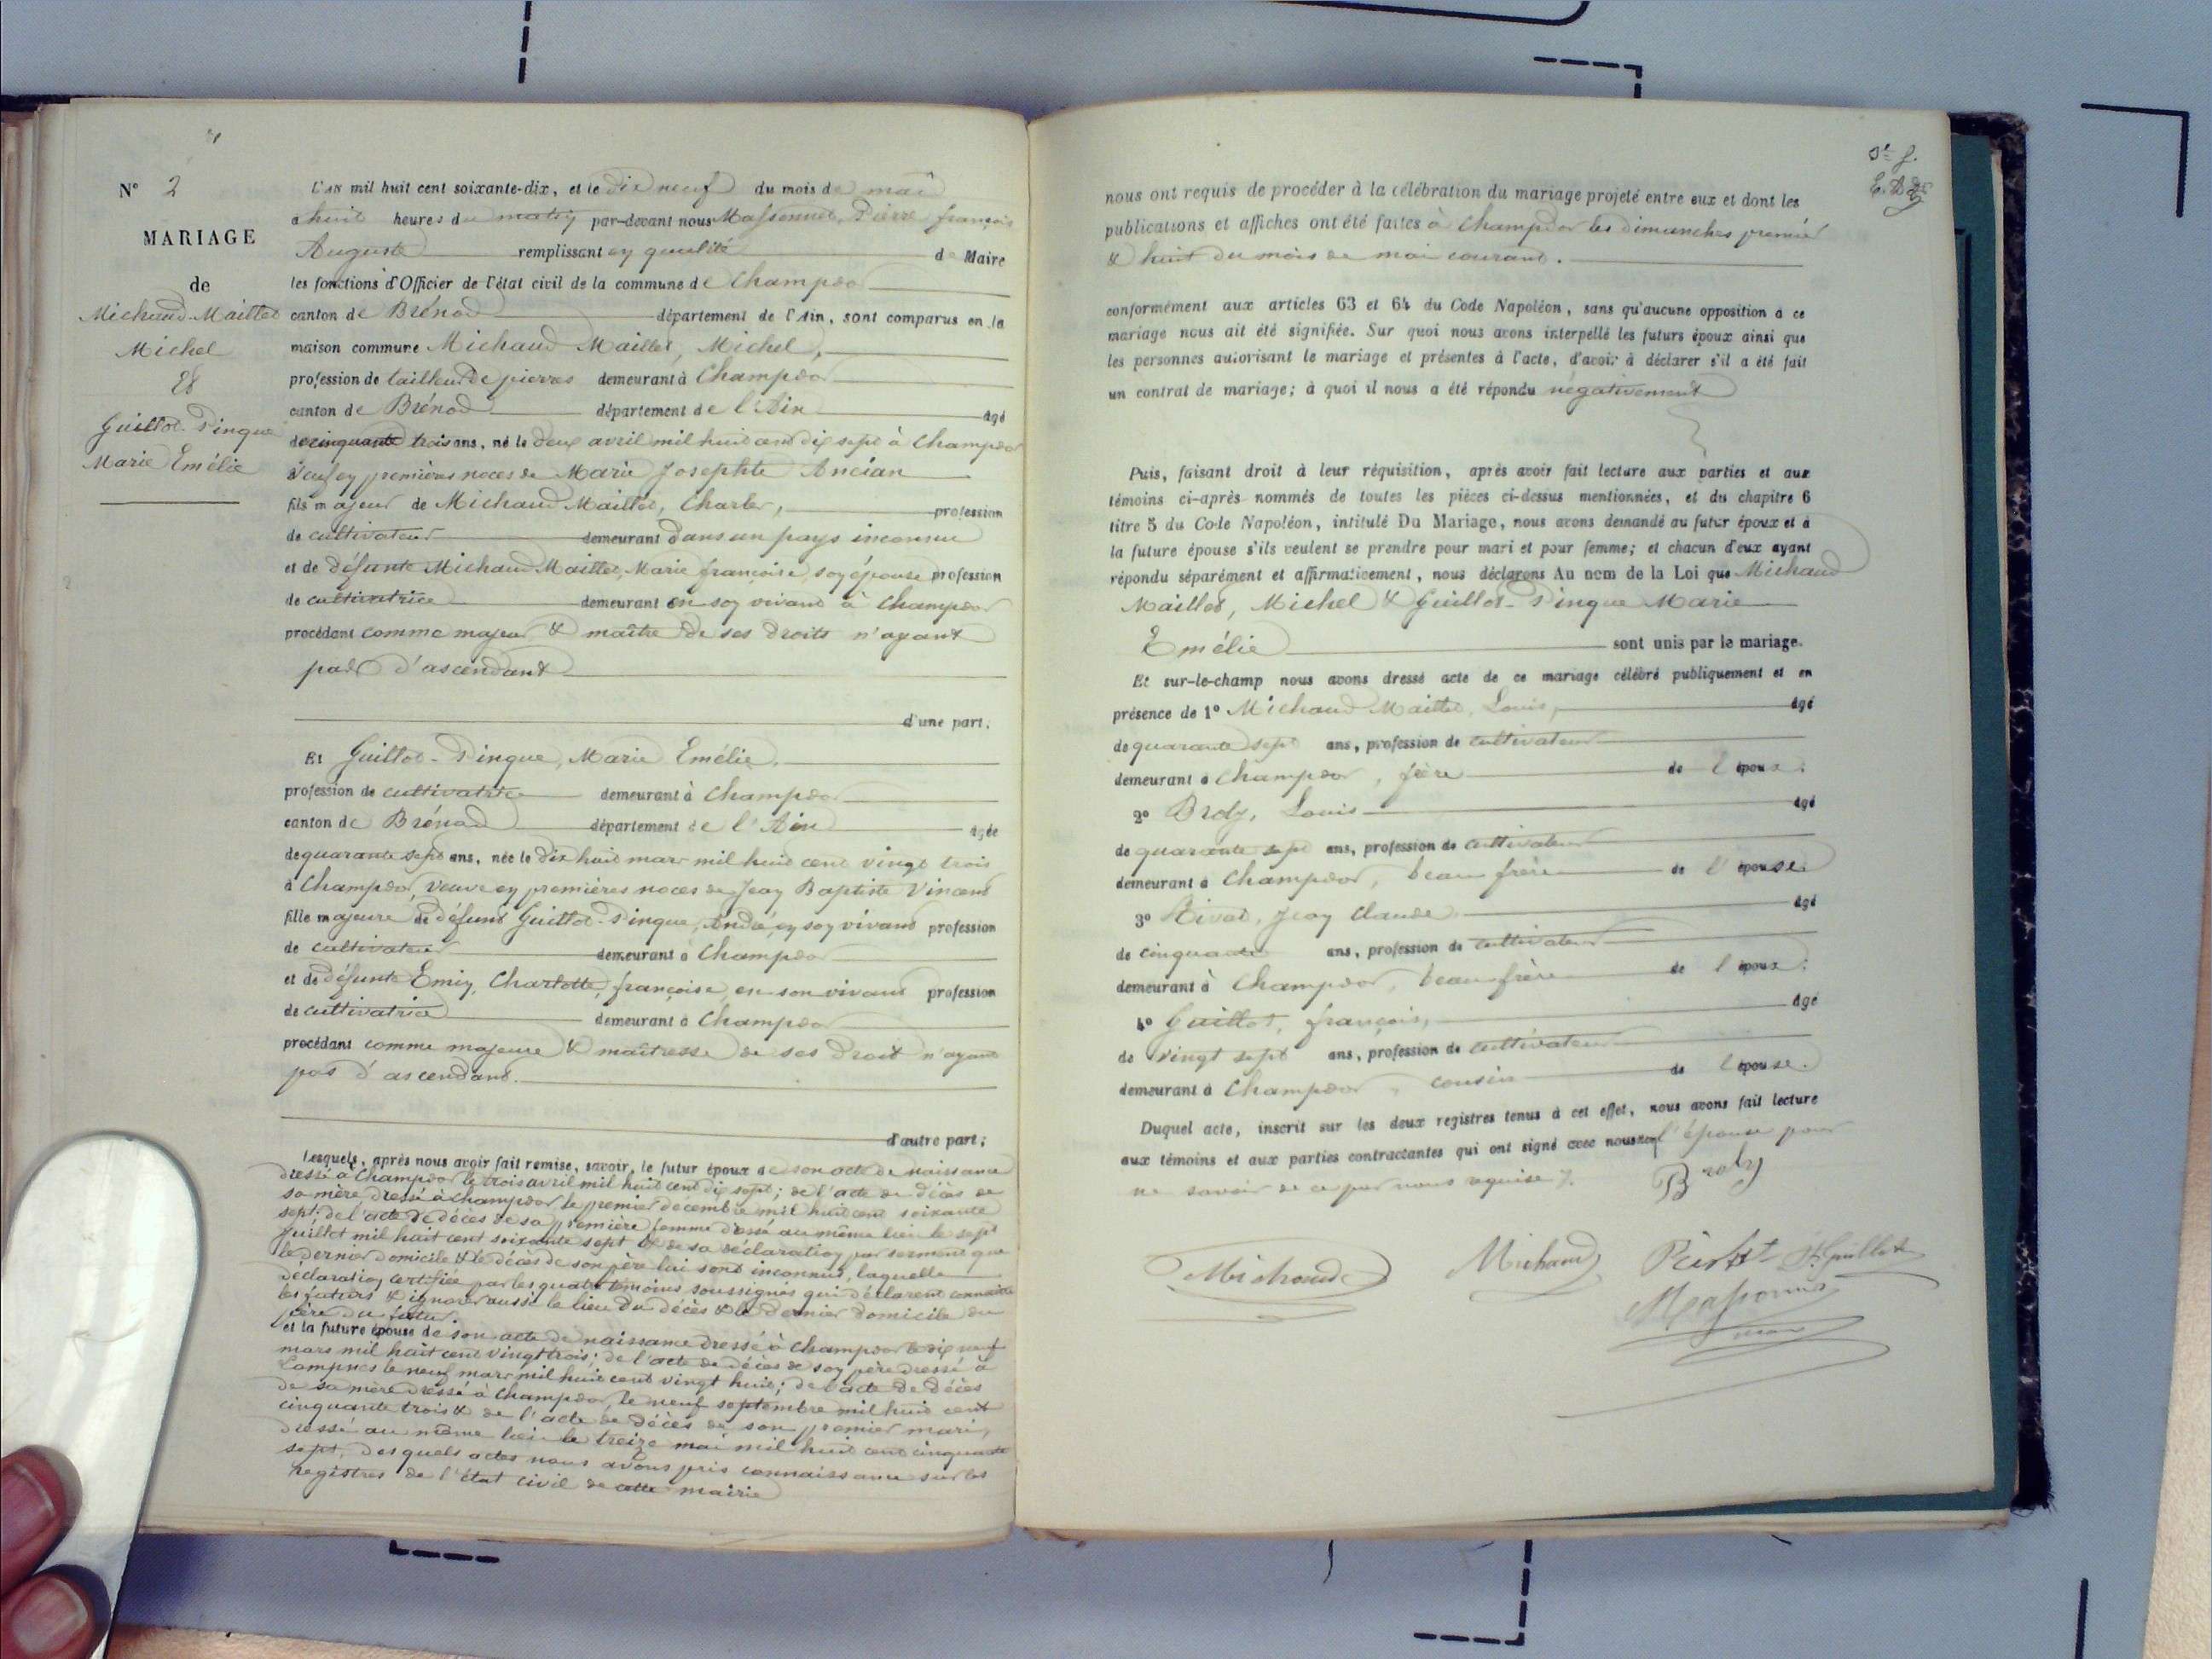 N° 2
MARIAGE
de
Michaud-Maillet
Michel
Et
Guillot-Pingue
Marie Emélie
L'an mil huit cent soixante-dix, et le dix neuf du mois de mai
a huit heures du matin par-devant nous Massonnet, Pierre françois
Auguste remplissant en qualité de Maire
les fonctions d'Officier de l'état civil de la commune de Champdor
canton de Brénod département de l'Ain, sont comparus en la
maison commune Michaud Maillet, Michel,
profession de tailleur de pierres demeurant à Champdor
canton de Brénod département de l'Ain âgé
de cinquante trois ans, né le deux avril mil huit cent dix sept à Champdor
veuf en premières noces de Marie Josephte Ancian
fils majeur de Michaud Maillet, Charles, profession
de cultivateur demeurant dans un pays inconnu
et de défunte Michaud Maillet, Marie françoise, son épouse profession
de cultivatrice demeurant en son vivant à Champdor
procédant comme majeur & maître de ses droits n'ayant
pas d'ascendant
d'une part.
Et Guillot-Pingue, Marie Emélie,
profession de cultivatrice demeurant à Champdor
canton de Brénod département de l'Ain âgée
de quarante sept ans, née le dix huit mars mil huit cent vingt trois
à Champdor, veuve en premières noces de Jean Baptiste Vincent
fille majeure de défunt Guillot-Pingue, André, en son vivant profession
de cultivateur demeurant à Champdor
et de défunte Emin, Charlotte, françoise, en son vivant profession
de cultivatrice demeurant à Champdor
procédant comme majeure & maîtresse de ses droit n'ayant
pas d'ascendant.
d'autre part;
Lesquels, après nous avoir fait remise, savoir, le futur époux de son acte de naissance
dressé à Champdor le trois avril mil huit cent dix sept; de l'acte de décès de
sa mère dressé à Champdor le premier décembre mil huit cent soixante
sept; de l'acte de décès de sa première femme dressé au même lieu le sept
Juillet mil huit cent soixante sept & de sa déclaration par serment que
le dernier domicile & le décès de son père lui sont inconnus, laquelle
déclaration certifiée par les quatre témoins soussignés qui déclarent connaître
les futurs & ignorer aussi le lieu du décès & le dernier domicile du
père du futur.
et la future épouse de son acte de naissance dressé à Champdor le dix neuf
mars mil huit cent vingt trois; de l'acte de décès de son père dressé à
Lompnes le neuf mars mil huit cent vingt huit; de l'acte de décès
de sa mère dressé à Champdor, le neuf septembre mil huit cent
cinquante trois & de l'acte de décès de son premier mari,
dressé au même lieu le treize mai mil huit cent cinquante
sept, desquels actes nous avons pris connaissance sur les
registres de l'état civil de cette mairie
nous ont requis de procéder à la célébration du mariage projeté entre eux et dont les
publications et affiches ont été faites à Champdor les dimanches premier
& huit du mois de mai courant.
conformément aux articles 63 et 64 du Code Napoléon, sans qu'aucune opposition à ce
mariage nous ait été signifiée. Sur quoi nous avons interpellé les futurs époux ainsi que
les personnes autorisant le mariage et présentes à l'acte, d'avoir à déclarer s'il a été fait
un contrat de mariage; à quoi il nous a été répondu négativement
Puis, faisant droit à leur réquisition, après avoir fait lecture aux parties et aux
témoins ci-après nommés de toutes les pièces ci-dessus mentionnées, et du chapitre 6
titre 5 du Code Napoléon, intitulé Du Mariage, nous avons demandé au futur époux et à
la future épouse s'ils veulent se prendre pour mari et pour femme; et chacun d'eux ayant
répondu séparément et affirmativement, nous déclarons Au nom de la Loi que Michaud
Maillet, Michel & Guillot-Pingue Marie
Emélie sont unis par le mariage.
Et sur-le-champ nous avons dressé acte de ce mariage célébré publiquement et en
présence de 1° Michaud Maillet, Louis, âgé
de quarante sept ans, profession de cultivateur
demeurant à Champdor, frère de l'époux.
2° Broly, Louis âgé
de quarante sept ans, profession de cultivateur
demeurant à Champdor, beau frère de l'épouse
3° Rivat, Jean Claude âgé
de cinquante ans, profession de cultivateur
demeurant à Champdor, beau frère de l'époux.
4° Guillot, françois, âgé
de vingt sept ans, profession de cultivateur
demeurant à Champdor, cousin de l'épouse.
Duquel acte, inscrit sur les deux registres tenus à cet effet, nous avons fait lecture
aux témoins et aux parties contractantes qui ont signé avec nous non l'épouse pour
ne savoir de ce par nous requise
Broly
Michaud Michaud F. Guillot
Massonnet
maire